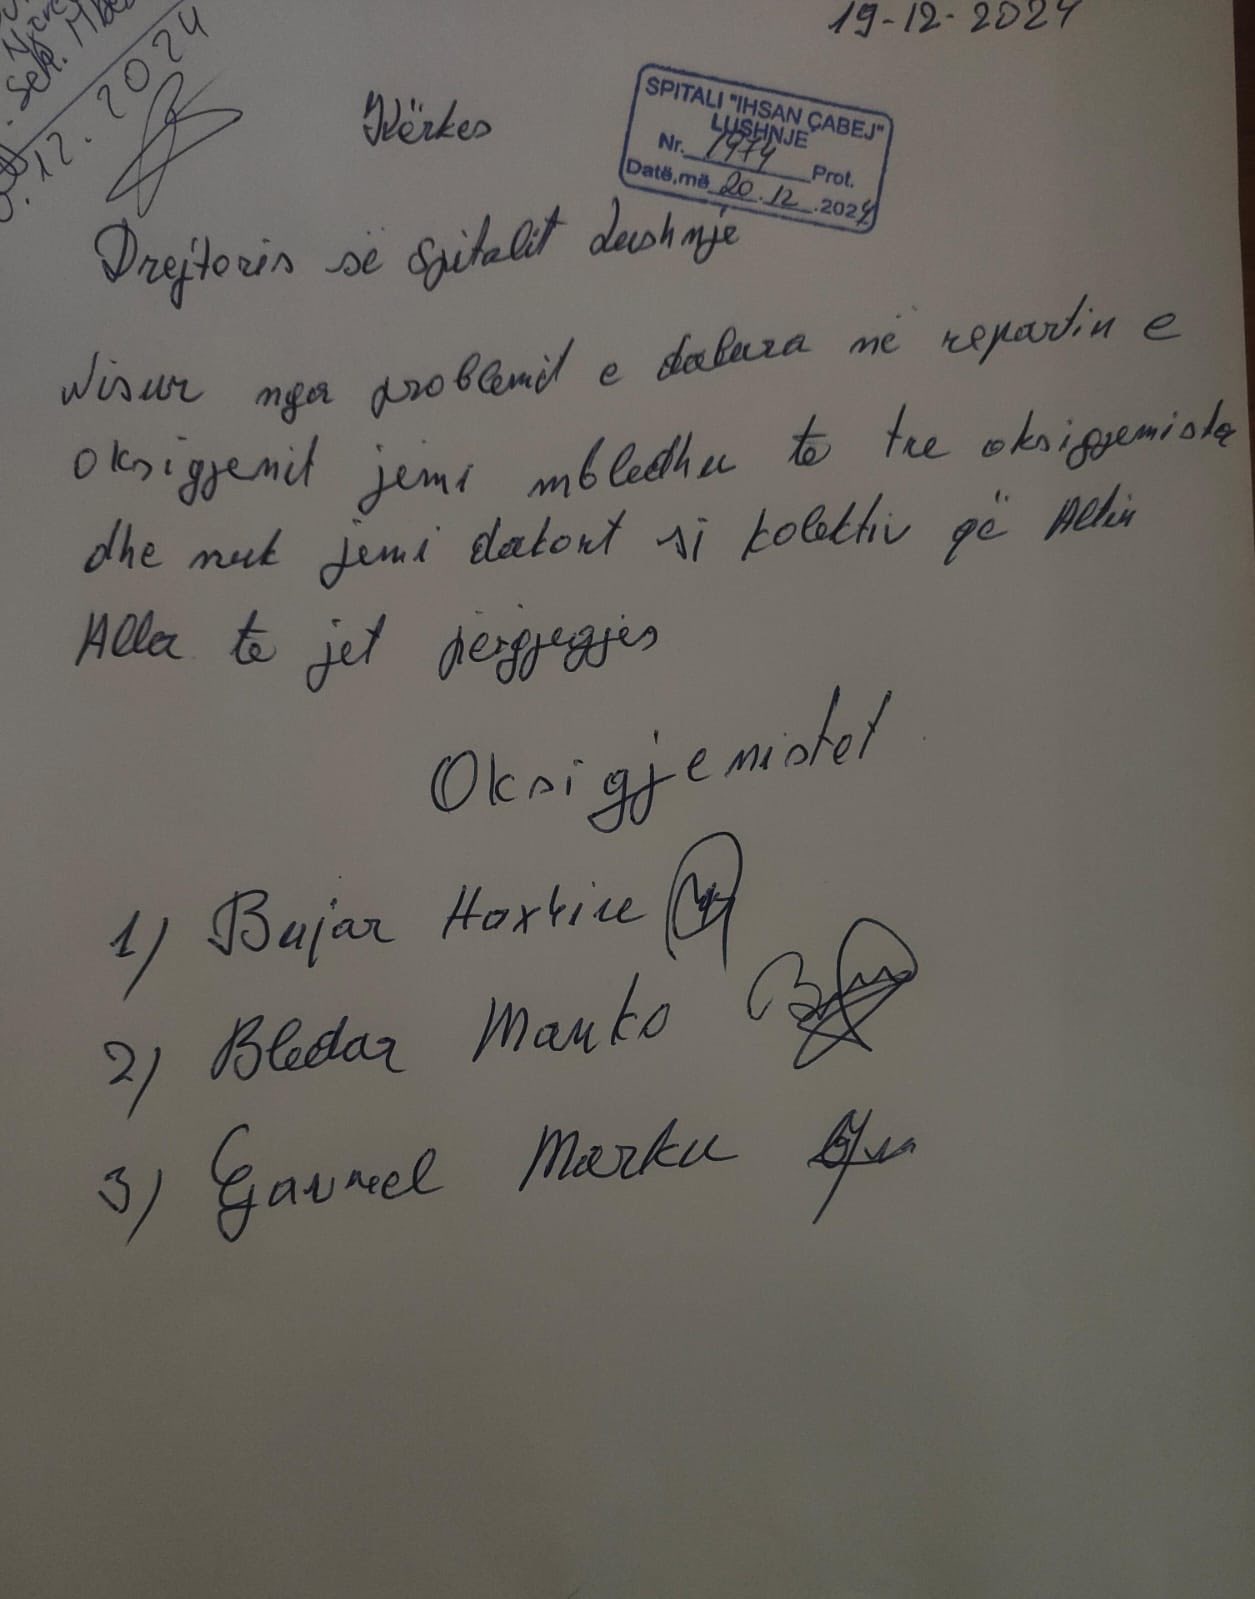 19-12-2024
Sek.
12.2024
Kërkes
SPITALI "IHSAN ÇABEJ"
LUSHNJE
Nr. 1974 Prot.
Datë,më 20.12.2024
Drejtoris së Spitalit Lushnje
Nisur nga problemit e dabara në repartin e
oksigjenit jemi mbledhu te tre oksigjemista
dhe nuk jemi dakort si kolektiv që Altin
Alla te jet përgjegjës
Oksigjemistet
1) Bujar Hoxhire
2) Bledar Manko
3) Gavmel Marku